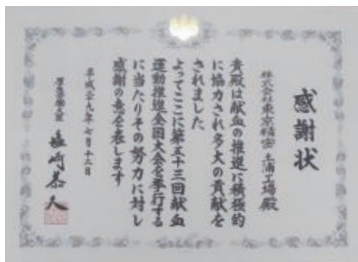 感謝状
株式会社東京精密 土浦工場殿
貴殿は献血の推進に積極的
に協力され多大の貢献を
されました
よってここに第五十三回献血
運動推進全国大会を挙行する
に当たりその努力に対し
感謝の意を表します
平成二十九年七月十二日
厚生労働大臣 塩崎恭久